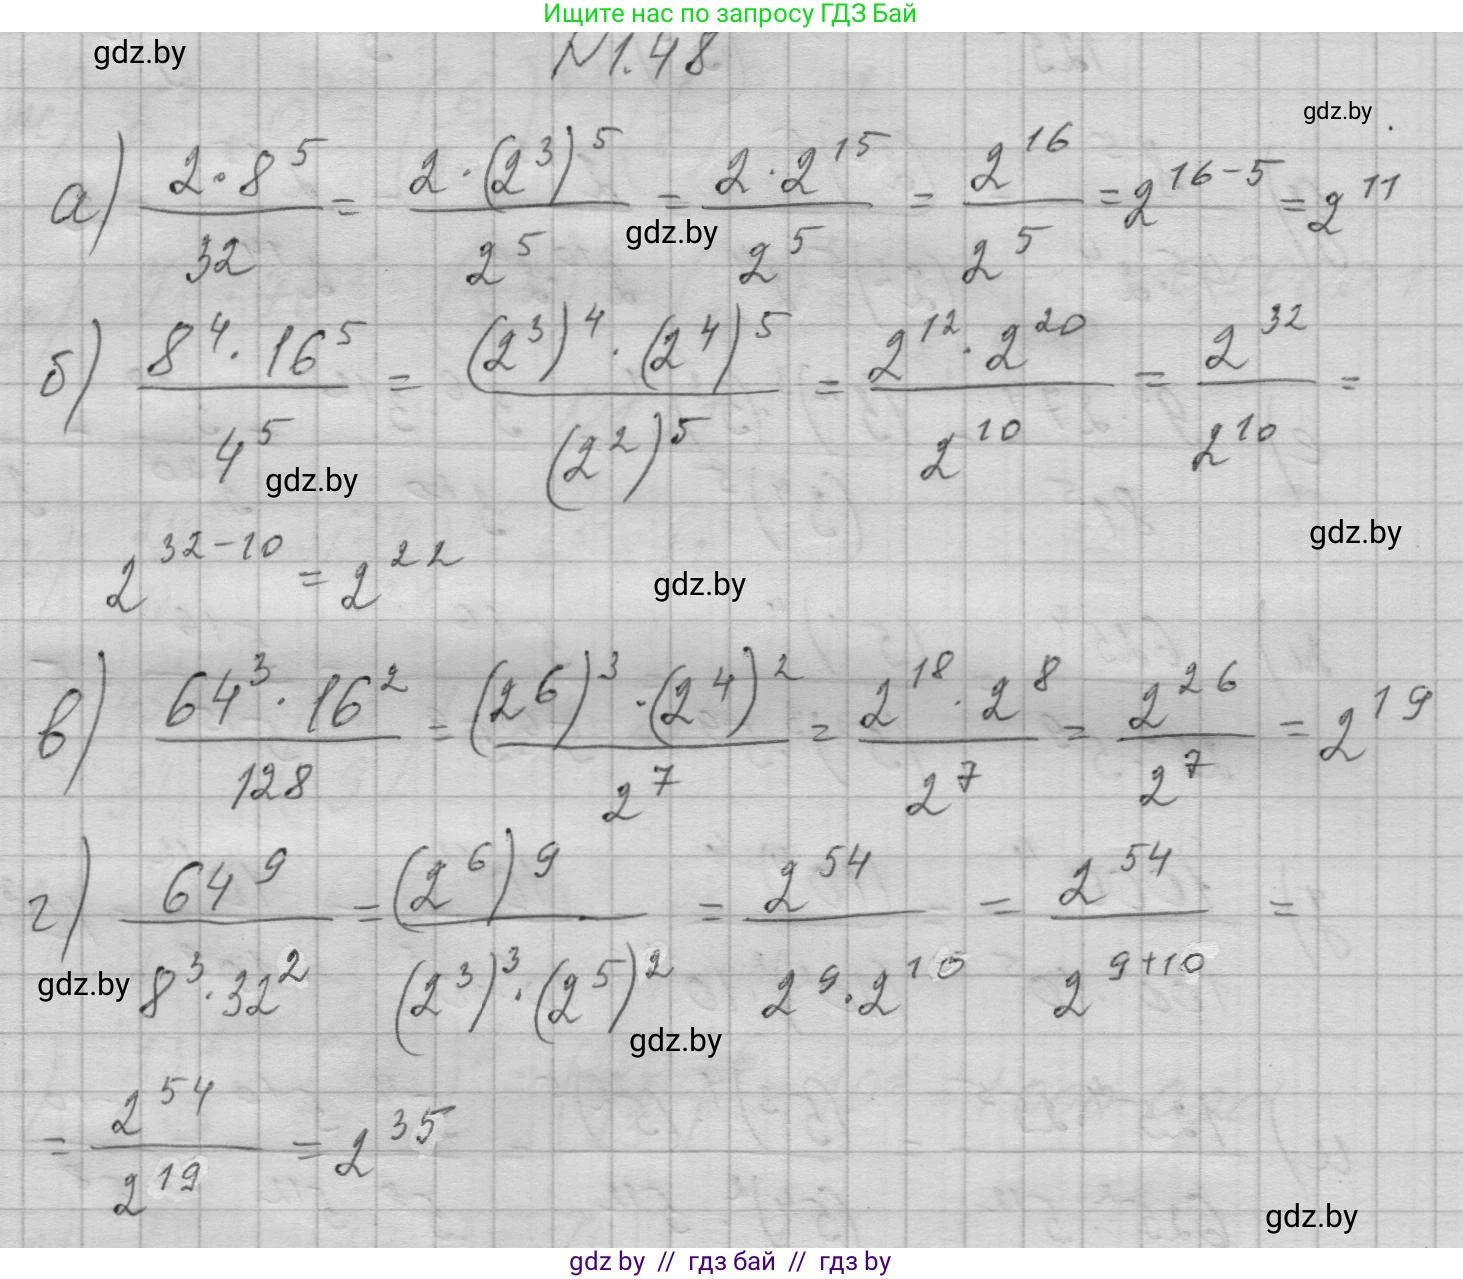 Ищите нас по запросу ГДЗ Бай
gdz.by
N1.48
gdz.by
а) (2·8^5)/32 = (2·(2^3)^5)/2^5 = (2·2^15)/2^5 = 2^16/2^5 = 2^(16-5) = 2^11
gdz.by
б) (8^4·16^5)/4^5 = ((2^3)^4·(2^4)^5)/(2^2)^5 = (2^12·2^20)/2^10 = 2^32/2^10 =
gdz.by
gdz.by
2^(32-10) = 2^22
gdz.by
в) (64^3·16^2)/128 = ((2^6)^3·(2^4)^2)/2^7 = (2^18·2^8)/2^7 = 2^26/2^7 = 2^19
г) 64^9/(8^3·32^2) = (2^6)^9/((2^3)^3·(2^5)^2) = 2^54/(2^9·2^10) = 2^54/2^(9+10) =
gdz.by
gdz.by
= 2^54/2^19 = 2^35
gdz.by
gdz by // гдз бай // гдз by